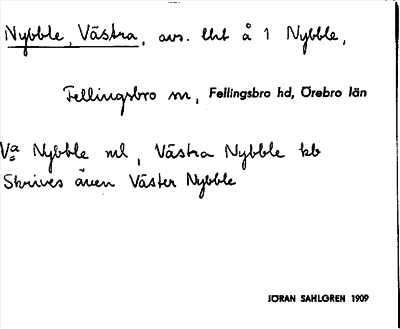 Nybble, Västra, avs. lht å 1 Nybble,
Fellingsbro sn, Fellingsbro hd, Örebro län
Va Nybble ml, Västra Nybble kb
Skrives även Väster Nybble
JÖRAN SAHLGREN 1909